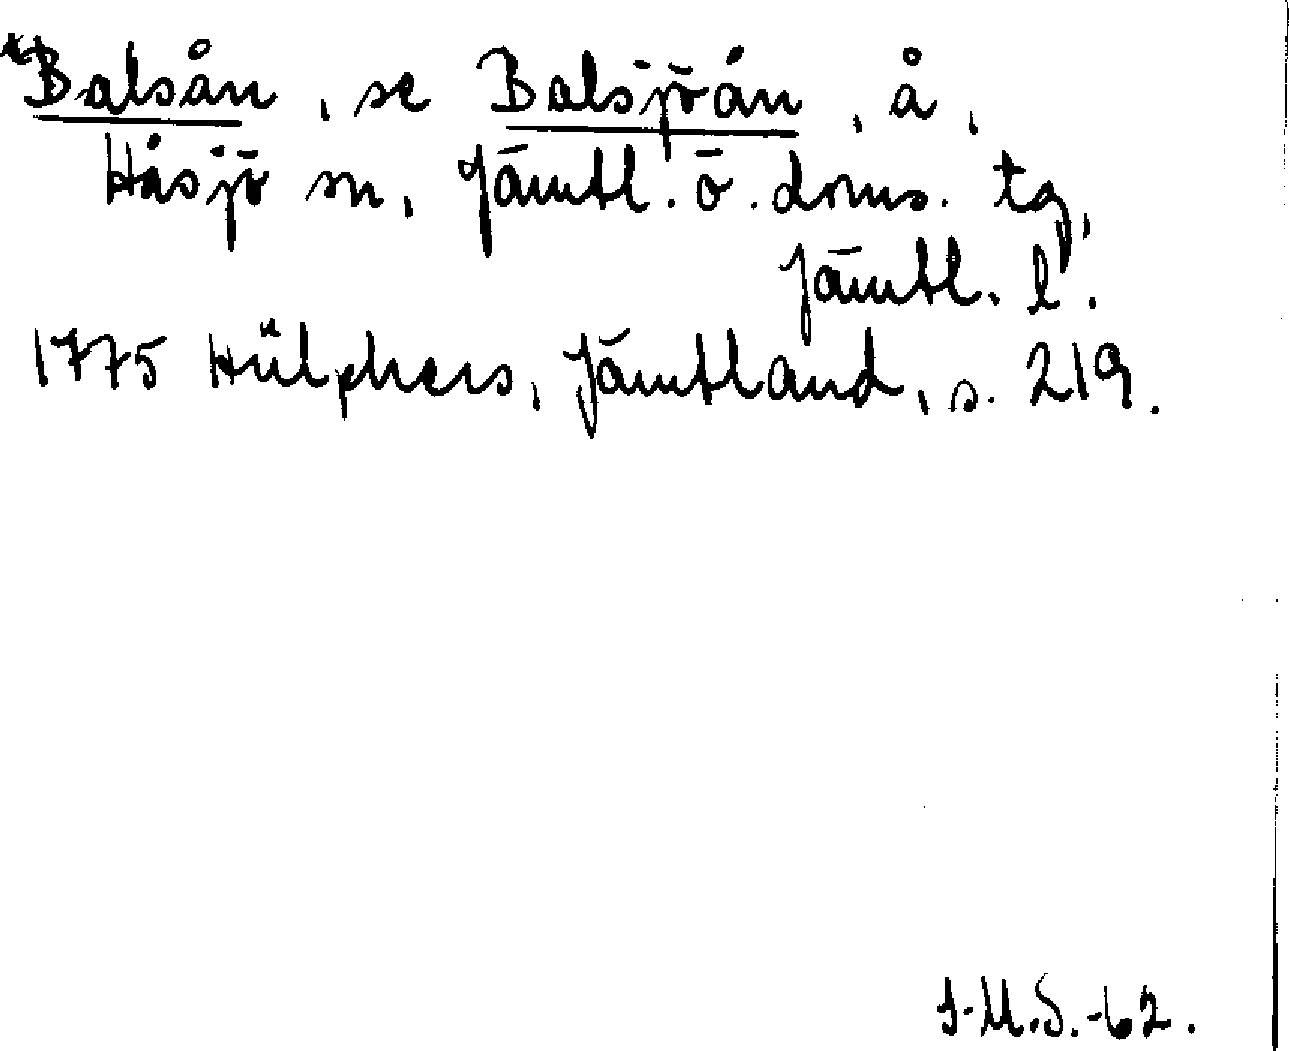 *Balsån, se Balsjöån, å,
Håsjö sn, Jämtl. ö. doms. tg,
Jämtl. l.
1775 Hülphers, Jämtland, s. 219.
I-M.S.-62.